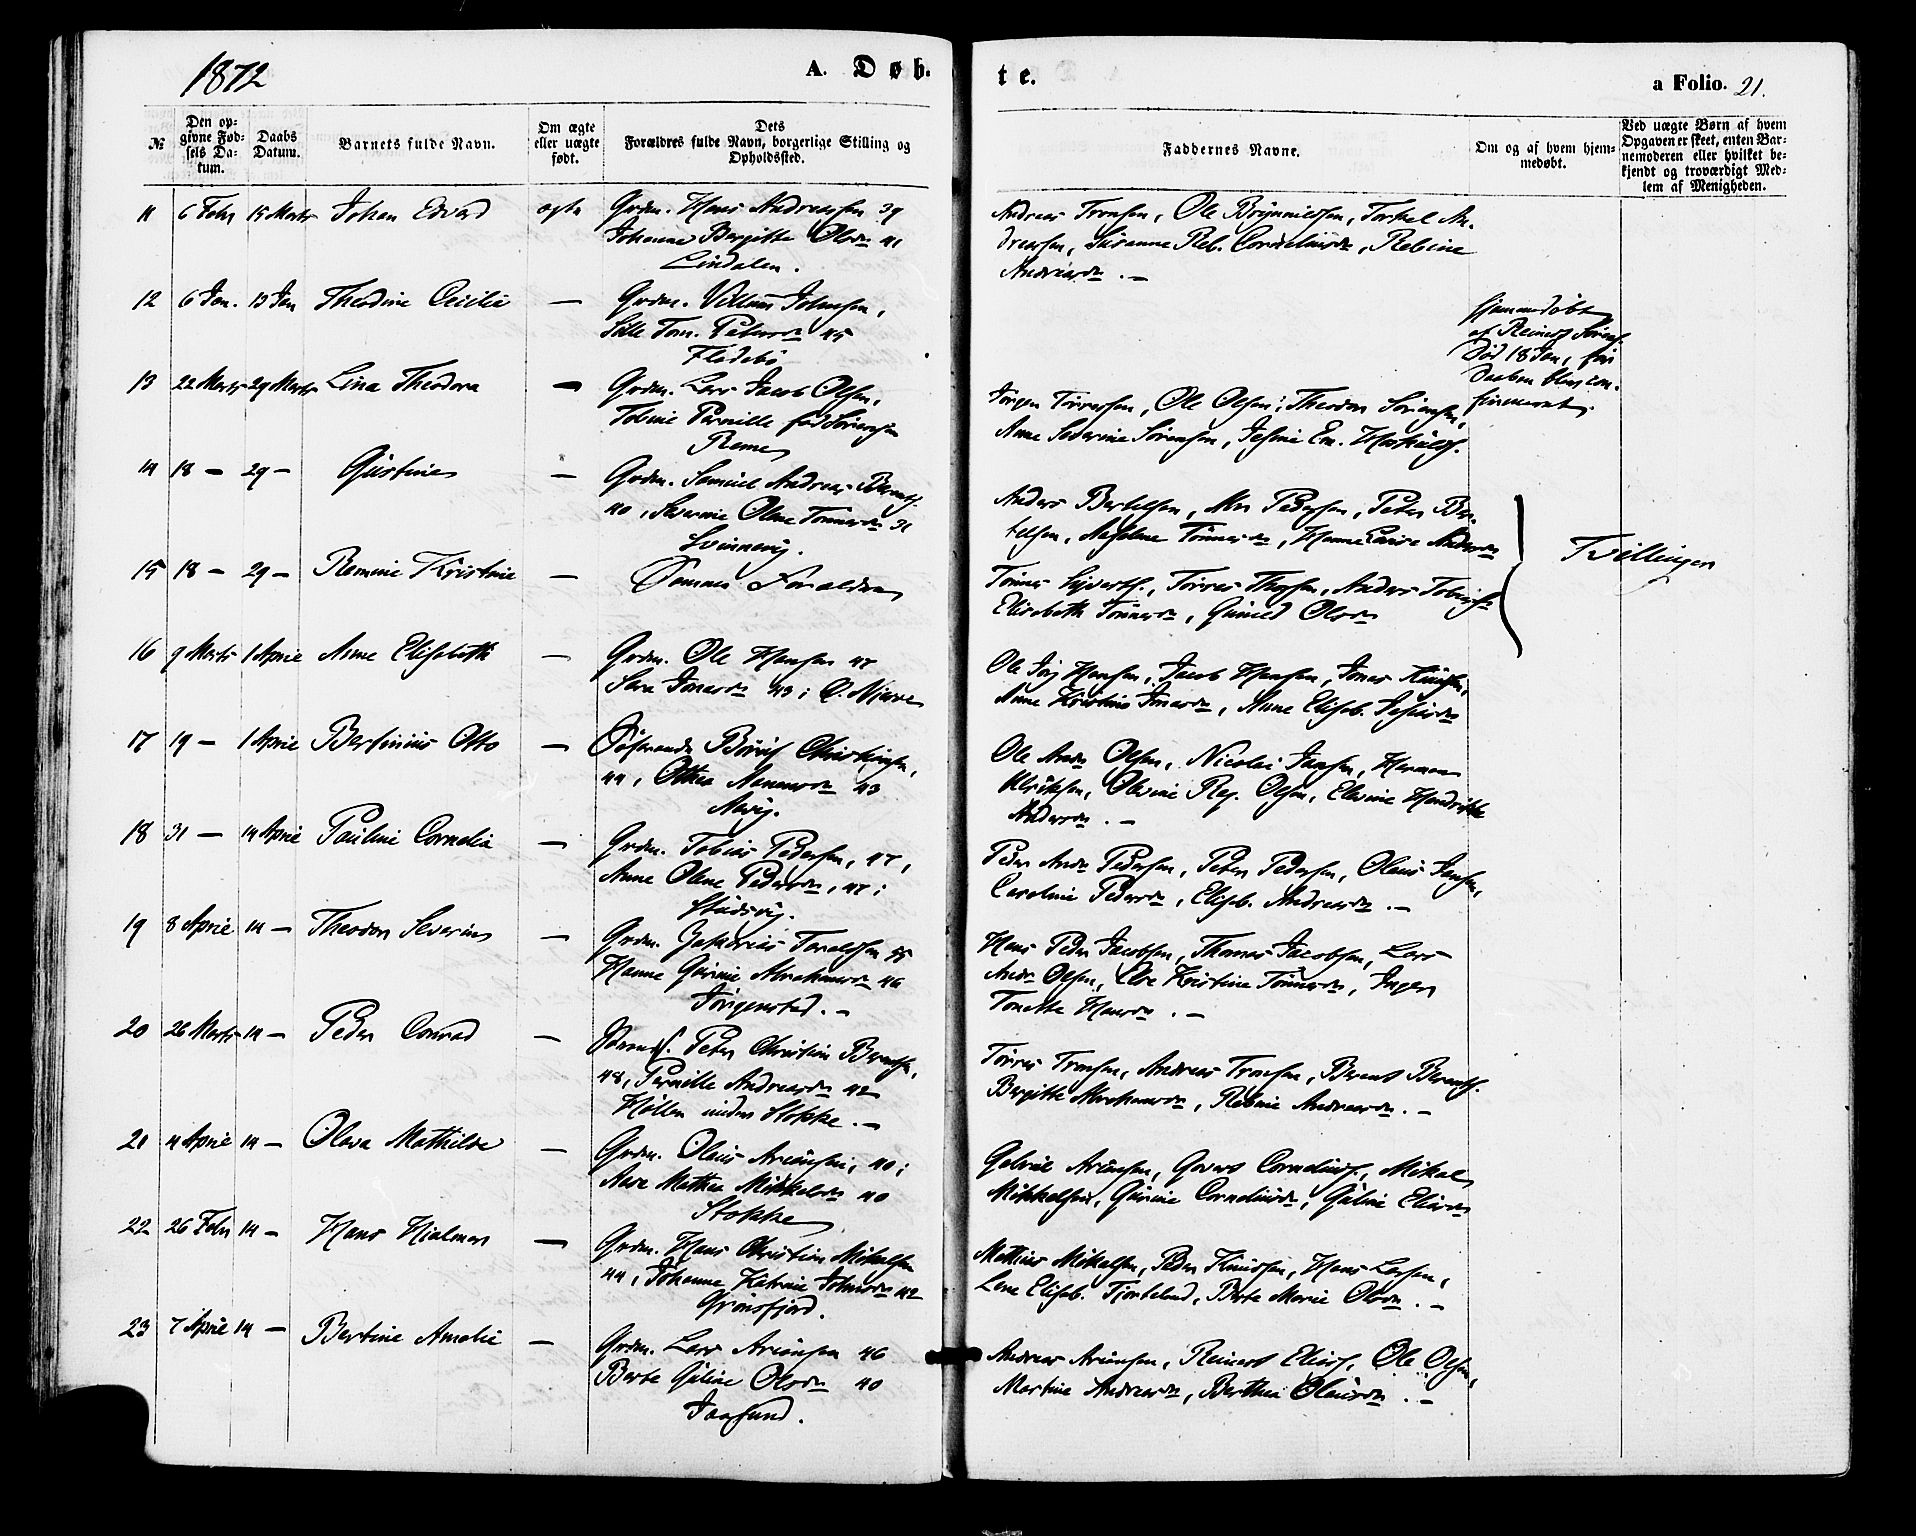 1872
A. Døb.
te.
a Folio. 21.
№
Den op-
givne Fød-
sels Da-
tum.
Daabs
Datum.
Barnets fulde Navn.
Om ægte
eller uægte
født.
Dets
Forældres fulde Navn, borgerlige Stilling og
Opholdssted.
Faddernes Navne.
Om og af hvem hjem-
medøbt.
Ved uægte Børn af hvem
Opgaven er skeet, enten Bar-
nemoderen eller hvilket be-
kjendt og troværdigt Med-
lem af Menigheden.
11 6 Febr 15 Marts Johan Edvard ægte Grdm. Hans Andreassen 39
Johanne Birgitte Olsdr 41
Lindalen.
Andreas Tronsen, Ole Brynnildsen, Torkel An-
dreassen, Susanne Reb. Corneliusdr, Rebine
Andreasdr. —
12 6 Jan. 13 Jan Theodine Cecilie — Grdm. Villum Johnsen,
Sille Tom. Petersdr 45
Fladebø
hjemmedøbt
af Reinert
Død 18 Jan, før
Daaben blev con-
firmeret.
13 22 Marts 29 Marts Lina Theodora — Grdm. Lars Jacob Olsen,
Tobine Pernille fød Sørensen
Rom
Jørgen Tørressen, Ole Olsen, Theodor Sørensen,
Anne Severine Sørensen, Jesine Em.
14 18 — 29 — Gustine — Grdm. Samuel Andreas Berents.
40, Severine Oline Tønnesdr 31
Svinnevig.
Anders Bertelsen, Peder Pedersen, Peter Ber-
telsen, Tønnesdr, Hanne Andersdr
15 18 — 29 — Romine Kristine — Samme Forældre
Tønnes Syverts., Tørres Thorsen, Anders Tobiass.
Elisabeth Tønnesdr, Gunild Olsdr
Tvillinger
16 9 Marts 1 April Anne Elisabeth — Grdm. Ole Hansen 47
Sara Jonasdr 43; Ø. Njerve
Ole Jørg Hansen, Jacob Hansen, Jonas Knudsen,
Anne Kristine Jonasdr, Anne Elisab. Jesiasdr
17 19 — 1 April Bertinius Otto — Søfarende Børuf Christensen,
44, Othea Nanensdr 43
Avig.
Ole Andr Olsen, Nicolai Jansen, Herman
Ulriksen, Olevine Reg. Olsen, Elevine Hendrikke
Andersdr. —
18 31 — 14 April Pauline Cornelia — Grdm. Tobias Pedersen, 47,
Anne Oline Pedersdr, 47;
Studevig.
Peder Andr Pedersen, Peter Pedersen, Olaus Jansen,
Caroline Pedersdr, Elisab. Andreasdr. —
19 8 April 14 — Theodor Severin — Grdm. Zakarias Taraldsen 45
Hanne Gurine Abrahamsdr 46
Jørgenstad. —
Hans Peder Jacobsen, Thomas Jacobsen, Lars
Andr Olsen, Else Kristine Tønnesdr, Inger
Tonette Hansdr. —
20 26 Marts 14 — Peder Conrad — Peter Christian Berentsen,
48, Pernille Andreasdr 42
Høllen under Stokke. —
Tørres Tronsen, Andreas Tronsen, Berent Berents.
Birgitte Abrahamsdr, Rebine Andreasdr. —
21 4 April 14 — Olava Mathilde — Grdm. Olaus Ariansen, 40;
Ane Mathea Mikkelsdr 40
Stokke
Gabriel Ariansen, Govert Cornelius., Mikal
Mikkelsen, Gurine Corneliusdr, Guline Eliasdr
22 26 Febr 14 — Hans Hjalmar — Grdm. Hans Christian Mikalsen
44, Johanne Katrine Johnsdr 42
Grønsfjord.
Mathias Mikalsen, Peder Knudsen, Hans Larsen,
Lene Elisab. Fjorteland, Berte Marie Olsdr. —
23 7 April 14 — Bertine Amalie — Grdm. Lars Ariansen 46
Berte Guline Olsdr 40
Jaasund.
Andreas Ariansen, Reinert Eliass., Ole Olsen,
Martine Andreasdr, Berthea Olausdr. —